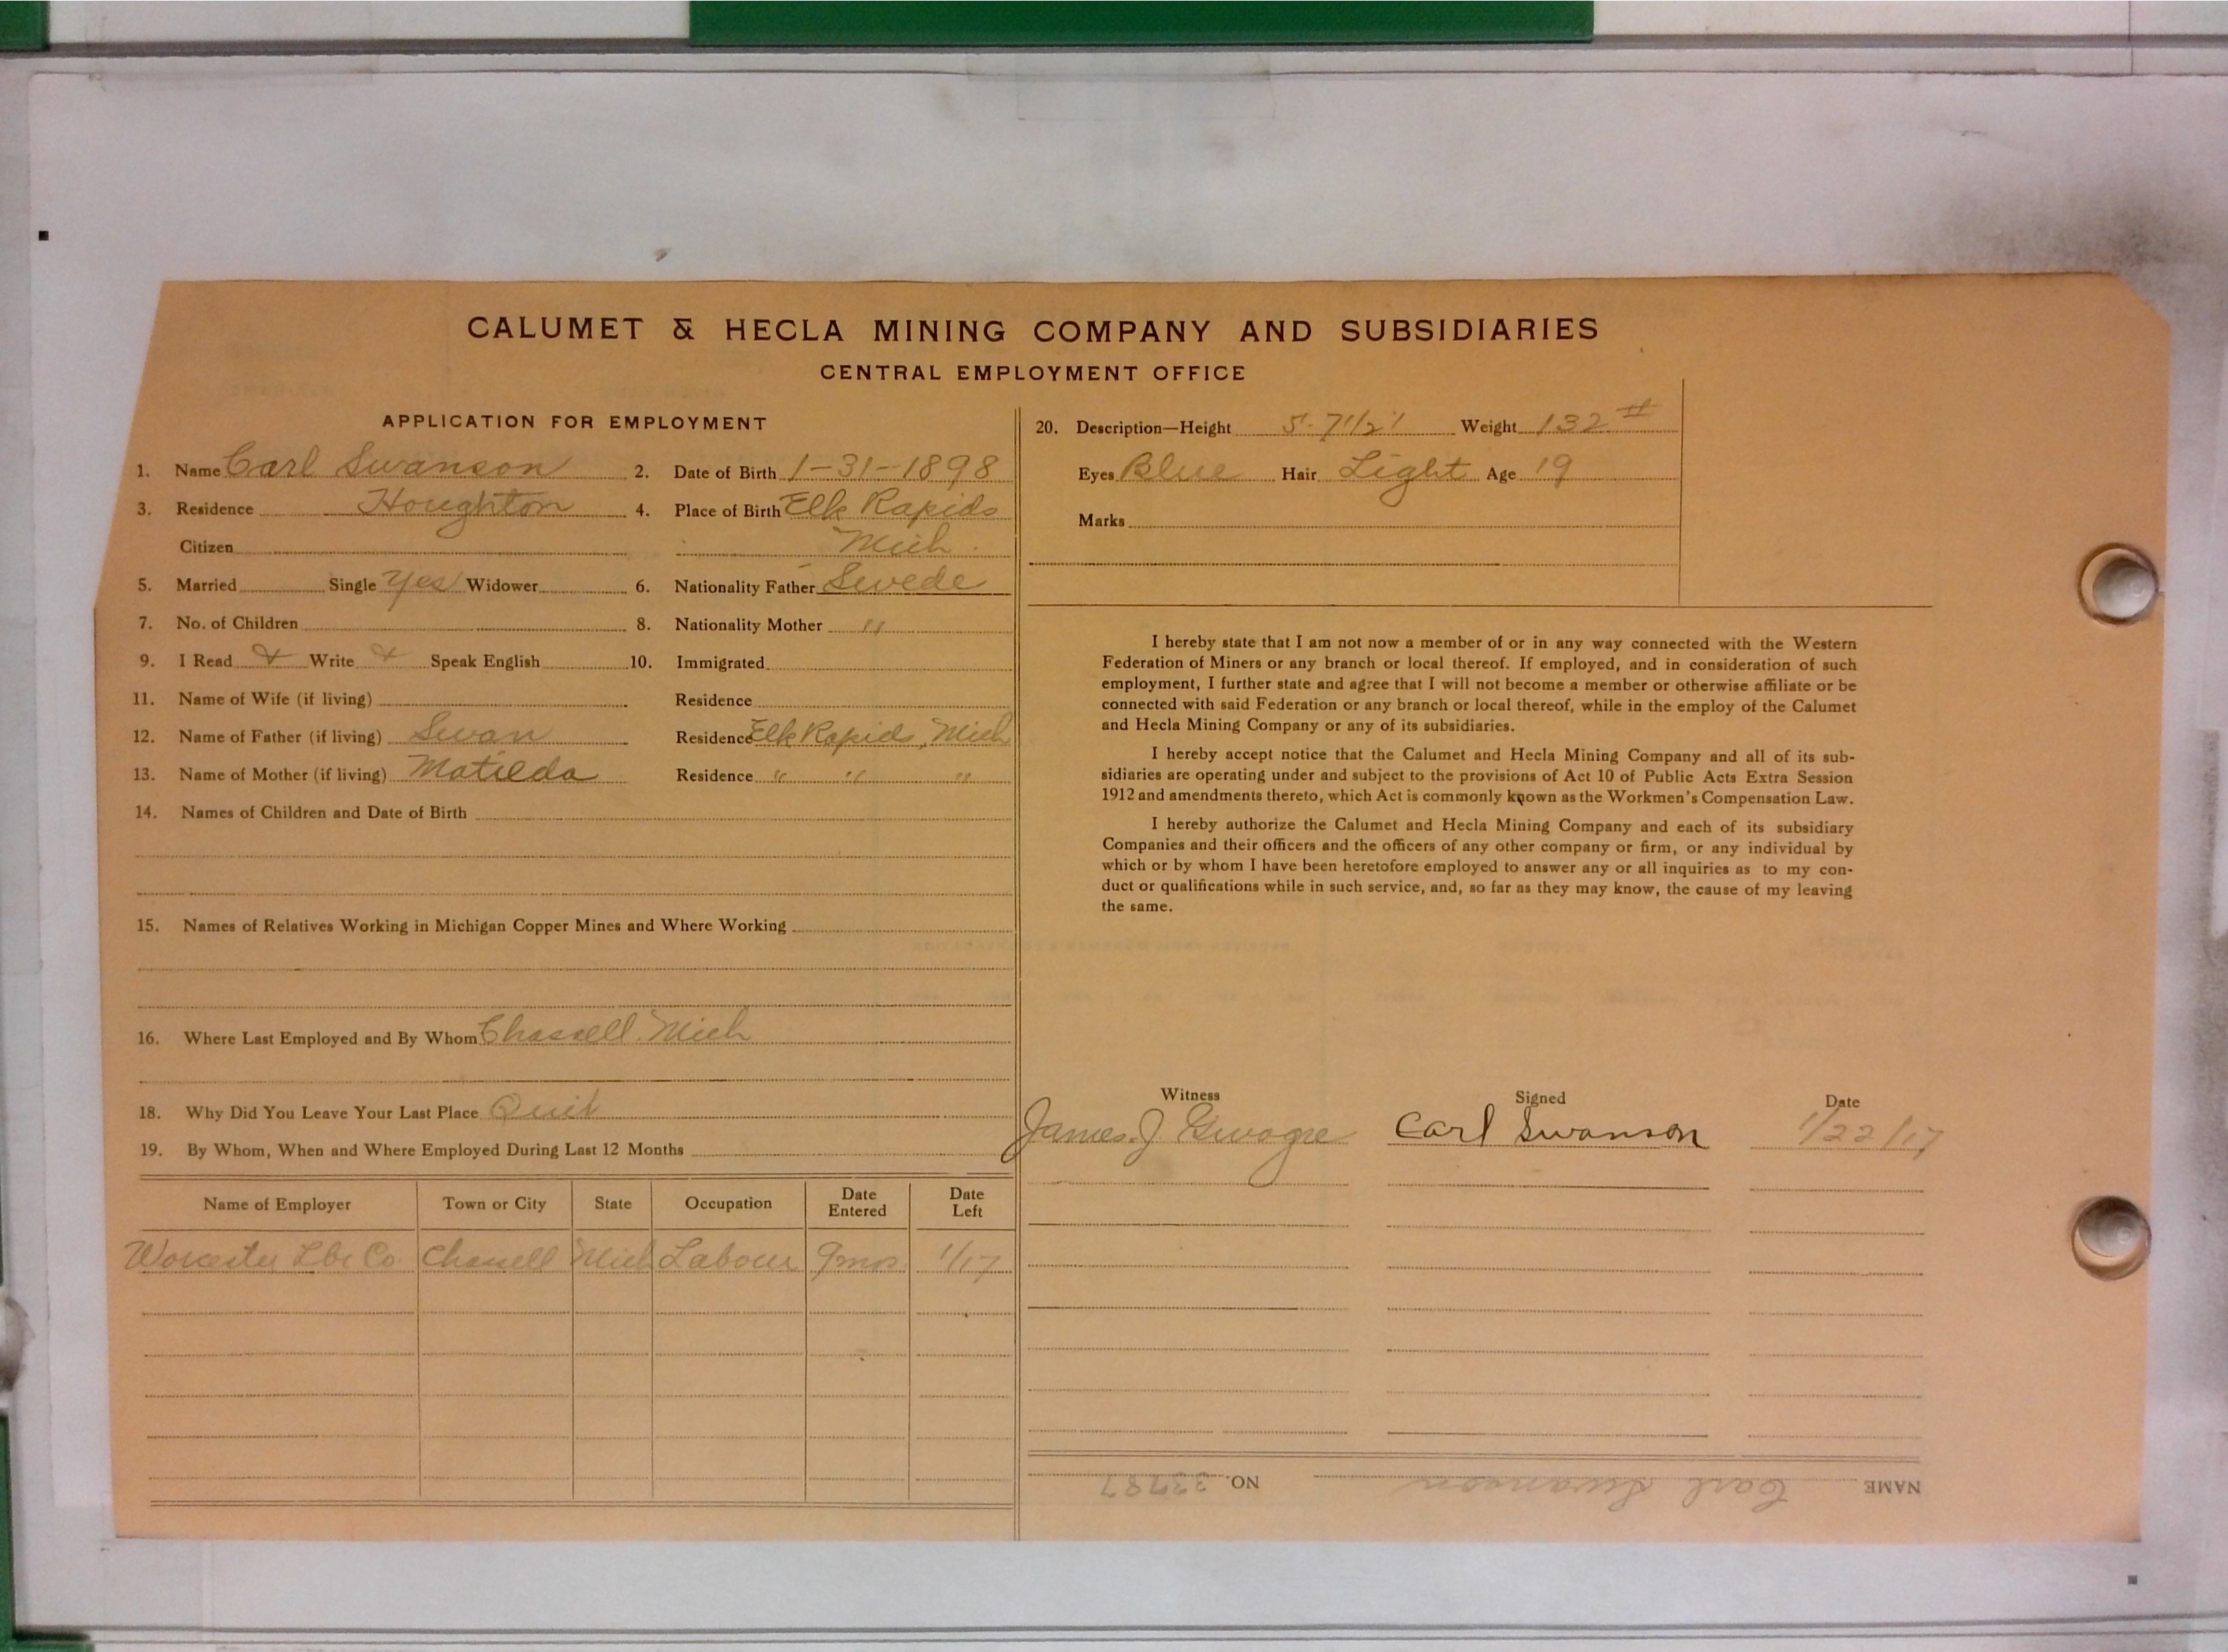 CALUMET & HECLA MINING COMPANY AND SUBSIDIARIES
CENTRAL EMPLOYMENT OFFICE
APPLICATION FOR EMPLOYMENT
1. Name Carl Swanson 2. Date of Birth 1-31-1898
3. Residence Houghton 4. Place of Birth Elk Rapids
Citizen Mich.
5. Married Single Yes Widower 6. Nationality Father Swede
7. No. of Children 8. Nationality Mother "
9. I Read Write Speak English 10. Immigrated
11. Name of Wife (if living) Residence
12. Name of Father (if living) Swan Residence Elk Rapids, Mich
13. Name of Mother (if living) Matilda Residence " " "
14. Names of Children and Date of Birth
15. Names of Relatives Working in Michigan Copper Mines and Where Working
16. Where Last Employed and By Whom Chassell, Mich
18. Why Did You Leave Your Last Place Quit
19. By Whom, When and Where Employed During Last 12 Months
Name of Employer Town or City State Occupation Date Entered Date Left
Worcester Lbr Co. Chassell Mich Labour 9mos. 1/17
20. Description—Height 5'-7 1/2" Weight 132 #
Eyes Blue Hair Light Age 19
Marks
I hereby state that I am not now a member of or in any way connected with the Western
Federation of Miners or any branch or local thereof. If employed, and in consideration of such
employment, I further state and agree that I will not become a member or otherwise affiliate or be
connected with said Federation or any branch or local thereof, while in the employ of the Calumet
and Hecla Mining Company or any of its subsidiaries.
I hereby accept notice that the Calumet and Hecla Mining Company and all of its sub-
sidiaries are operating under and subject to the provisions of Act 10 of Public Acts Extra Session
1912 and amendments thereto, which Act is commonly known as the Workmen's Compensation Law.
I hereby authorize the Calumet and Hecla Mining Company and each of its subsidiary
Companies and their officers and the officers of any other company or firm, or any individual by
which or by whom I have been heretofore employed to answer any or all inquiries as to my con-
duct or qualifications while in such service, and, so far as they may know, the cause of my leaving
the same.
Witness Signed Date
James J. Carl Swanson 1/22/17
NAME Carl Swanson NO. 33787